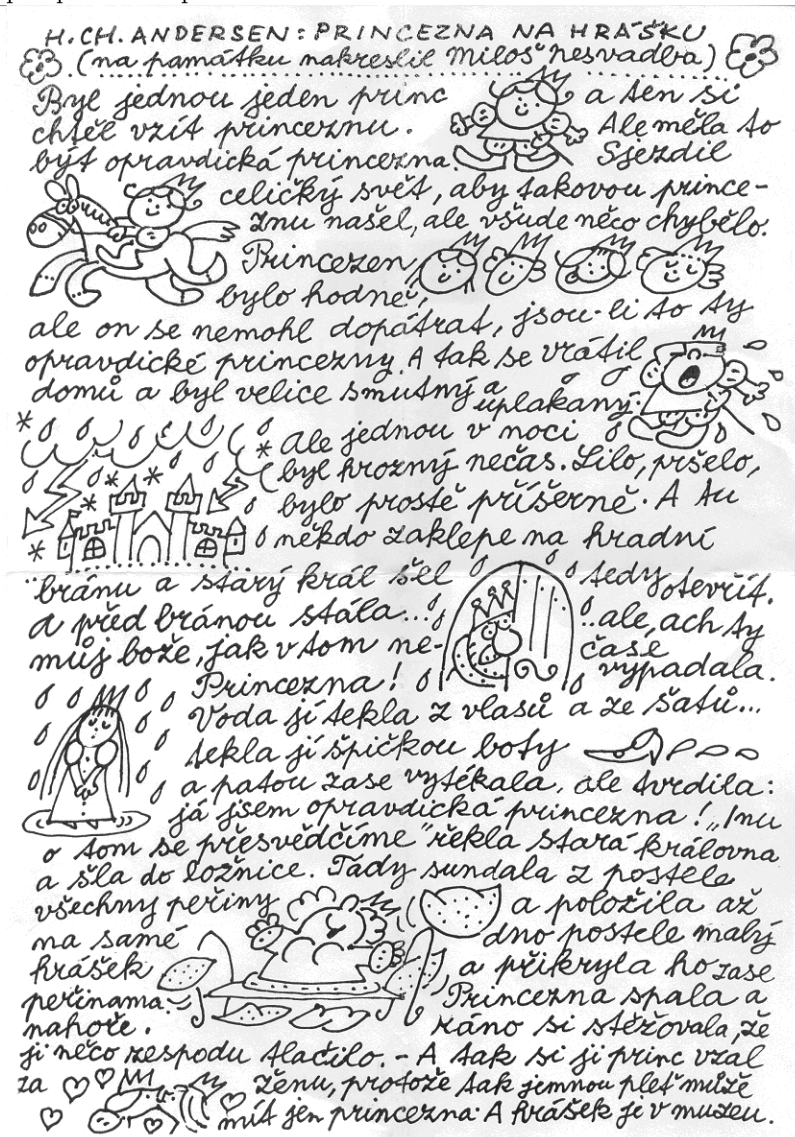 H. CH. ANDERSEN: PRINCEZNA NA HRÁŠKU
(na památku nakreslil Miloš Nesvadba)
Byl jednou jeden princ a ten si
chtěl vzít princeznu. Ale měla to
být opravdická princezna. Sjezdil
celičký svět, aby takovou prince-
znu našel, ale všude něco chybělo.
Princezen
bylo hodně,
ale on se nemohl dopátrat, jsou-li to ty
opravdické princezny. A tak se vrátil
domů a byl velice smutný a
uplakaný.
Ale jednou v noci
byl hrozný nečas. Lilo, pršelo,
bylo prostě příšerně. A tu
někdo zaklepe na hradní
bránu a starý král šel tedy otevřít.
A před bránou stála... ..ale, ach ty
můj bože, jak v tom ne- čase
vypadala.
Princezna!
Voda jí tekla z vlasů a ze šatů...
tekla jí špičkou boty
a patou zase vytékala, ale tvrdila:
já jsem opravdická princezna! „Inu
o tom se přesvědčíme" řekla stará královna
a šla do ložnice. Tady sundala z postele
všechny peřiny a položila až
na samé dno postele malý
hrášek, a přikryla ho zase
peřinama. Princezna spala a
nahoře. ráno si stěžovala, že
ji něco zespodu tlačilo. - A tak si ji princ vzal
za ženu, protože tak jemnou pleť může
mít jen princezna. A hrášek je v muzeu.